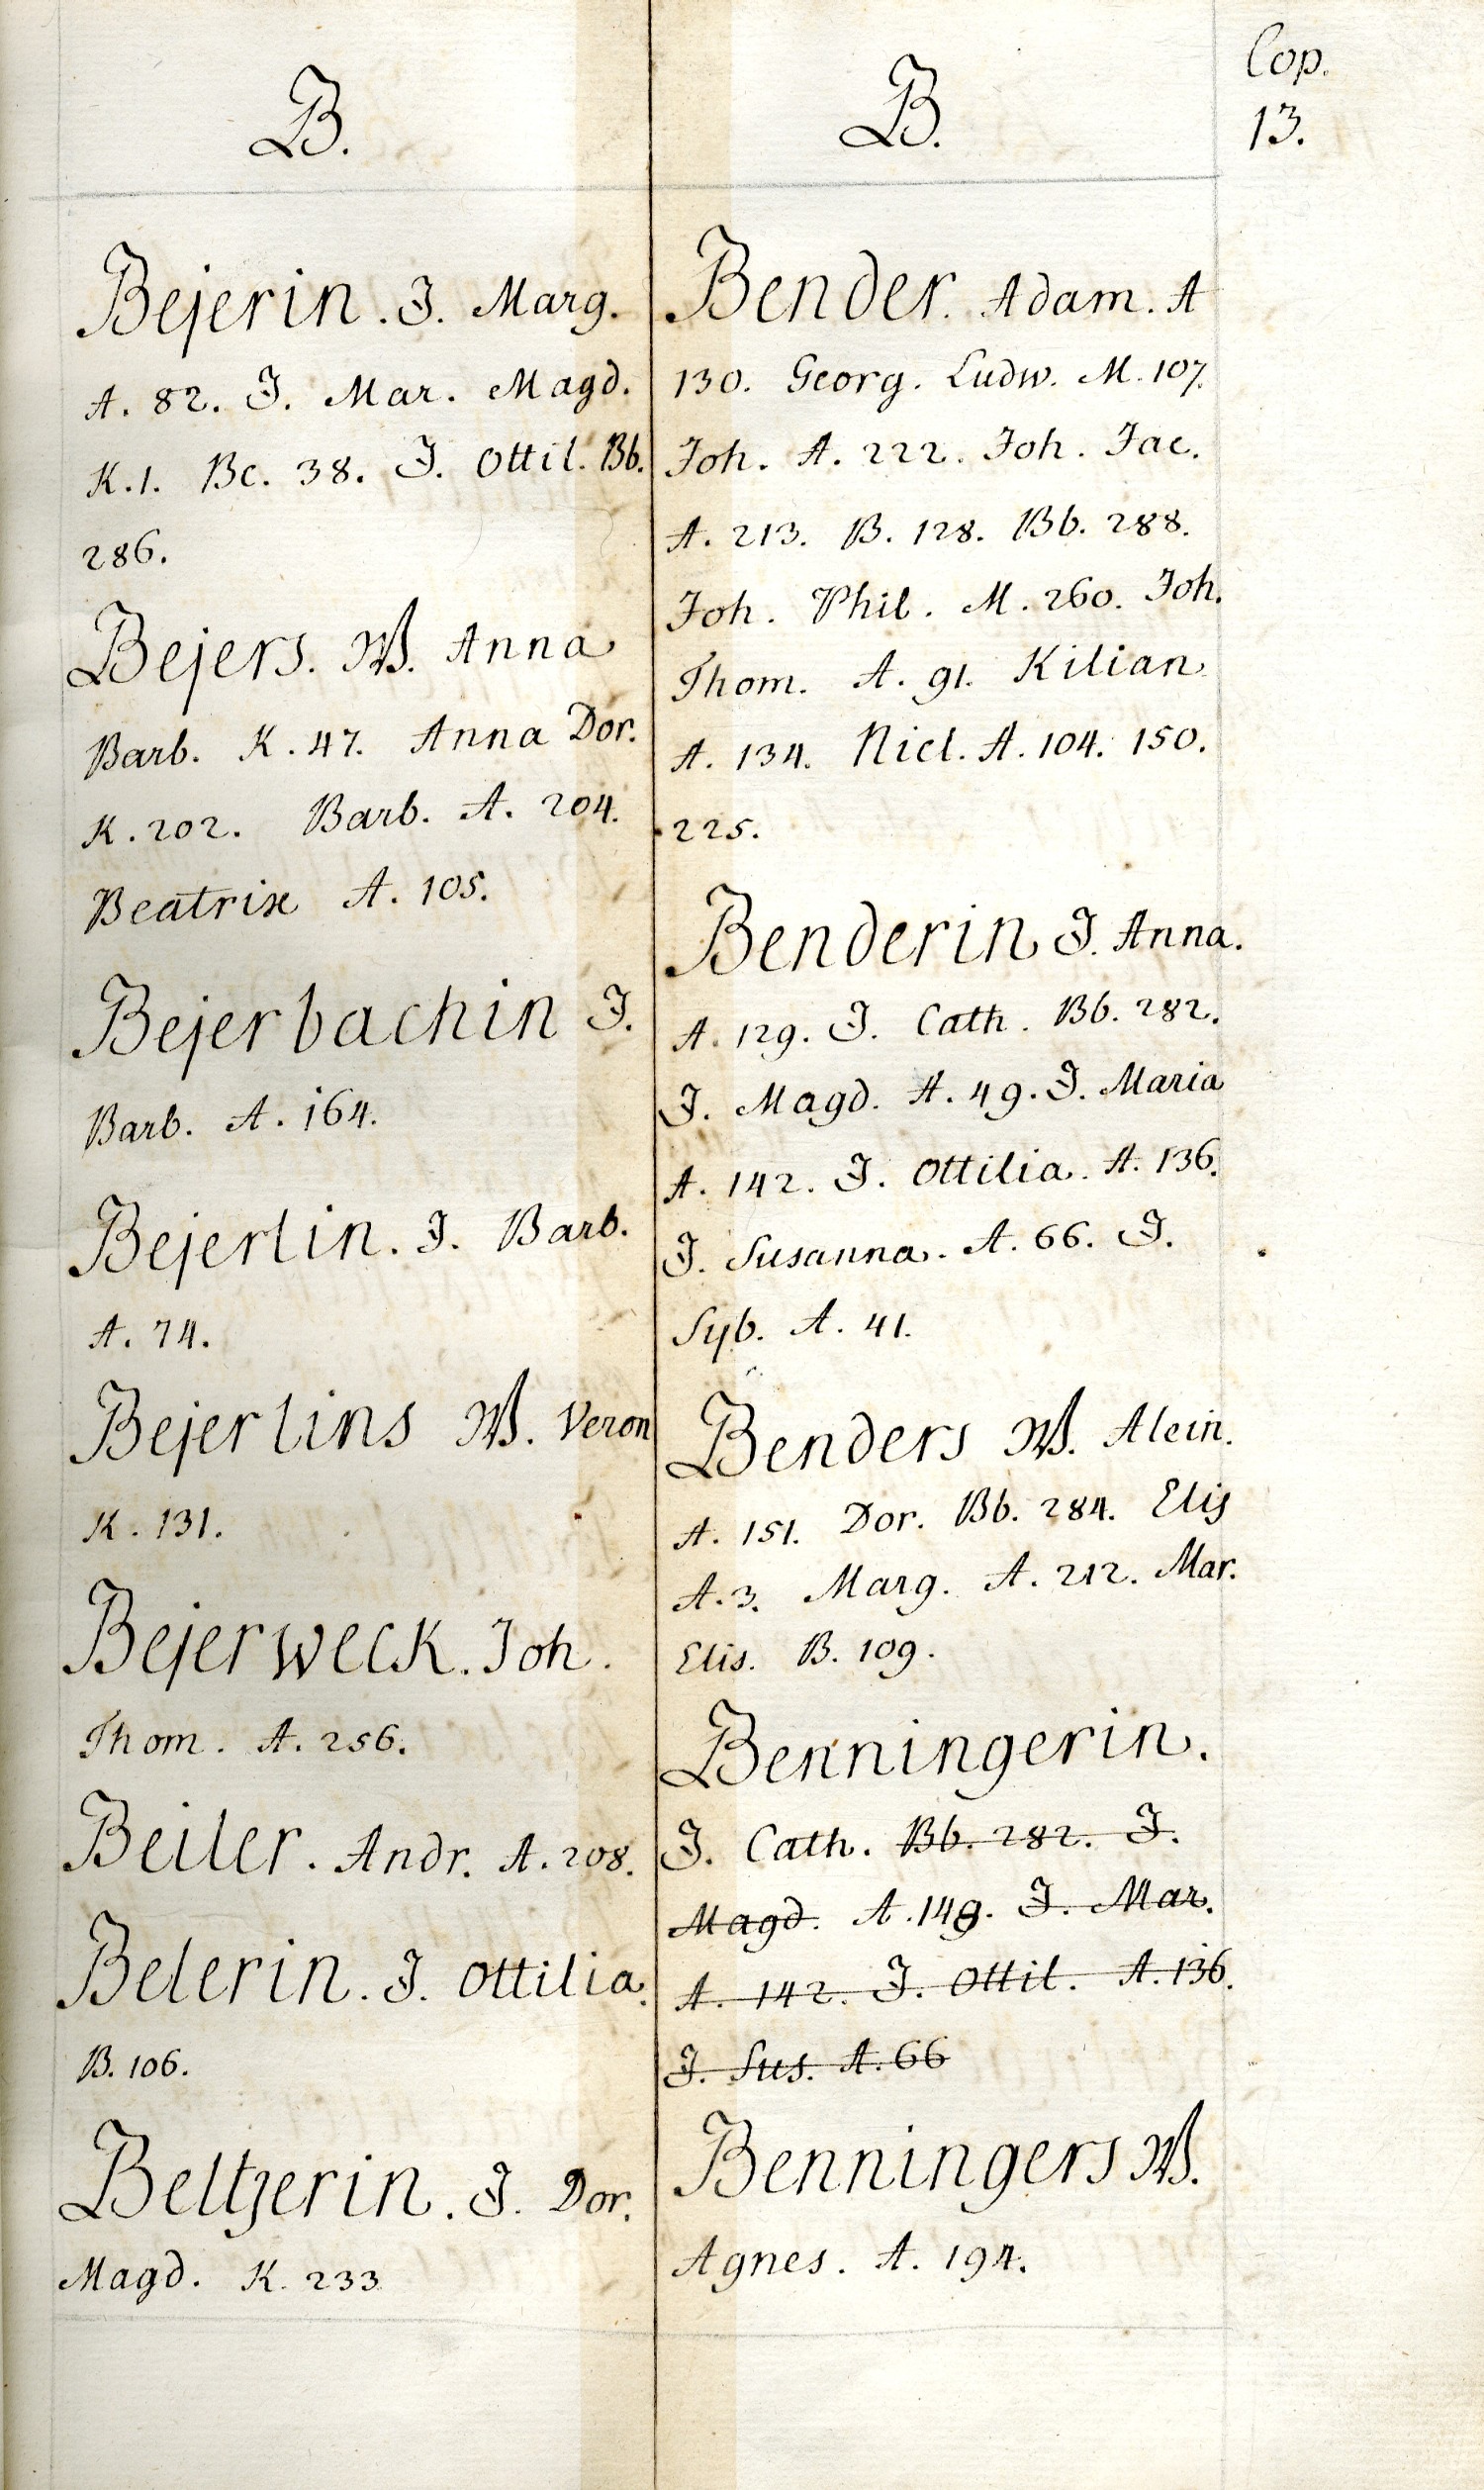 Cop.
13.
B.
Bejerin. J. Marg.
A. 82. J. Mar. Magd.
K. 1. Bc. 38. J. Ottil. Bb.
286.
Bejers. W. Anna
Barb. K. 47. Anna Dor.
K. 202. Barb. A. 204.
Beatrix A. 105.
Bejerbachin J.
Barb. A. 164.
Bejerlin. J. Barb.
A. 74.
Bejerlins W. Veron
K. 131.
Bejerweck. Joh.
Thom. A. 256.
Beiler. Andr. A. 208.
Belerin. J. Ottilia.
B. 106.
Beltzerin. J. Dor.
Magd. K. 233
B.
Bender. Adam. A
130. Georg. Ludw. M. 107.
Joh. A. 222. Joh. Jac.
A. 213. B. 128. Bb. 288.
Joh. Phil. M. 260. Joh.
Thom. A. 91. Kilian
A. 134. Nicl. A. 104. 150.
225.
Benderin J. Anna.
A. 129. J. Cath. Bb. 282.
J. Magd. A. 49. J. Maria
A. 142. J. Ottilia. A. 136.
J. Susanna. A. 66. J.
Syb. A. 41.
Benders W. Alein.
A. 151. Dor. Bb. 284. Elis
A. 3. Marg. A. 212. Mar.
Elis. B. 109.
Benningerin.
J. Cath. Bb. 282. J.
Magd. A. 149. J. Mar.
A. 142. J. Ottil. A. 136.
J. Sus. A. 66
Benningers W.
Agnes. A. 194.